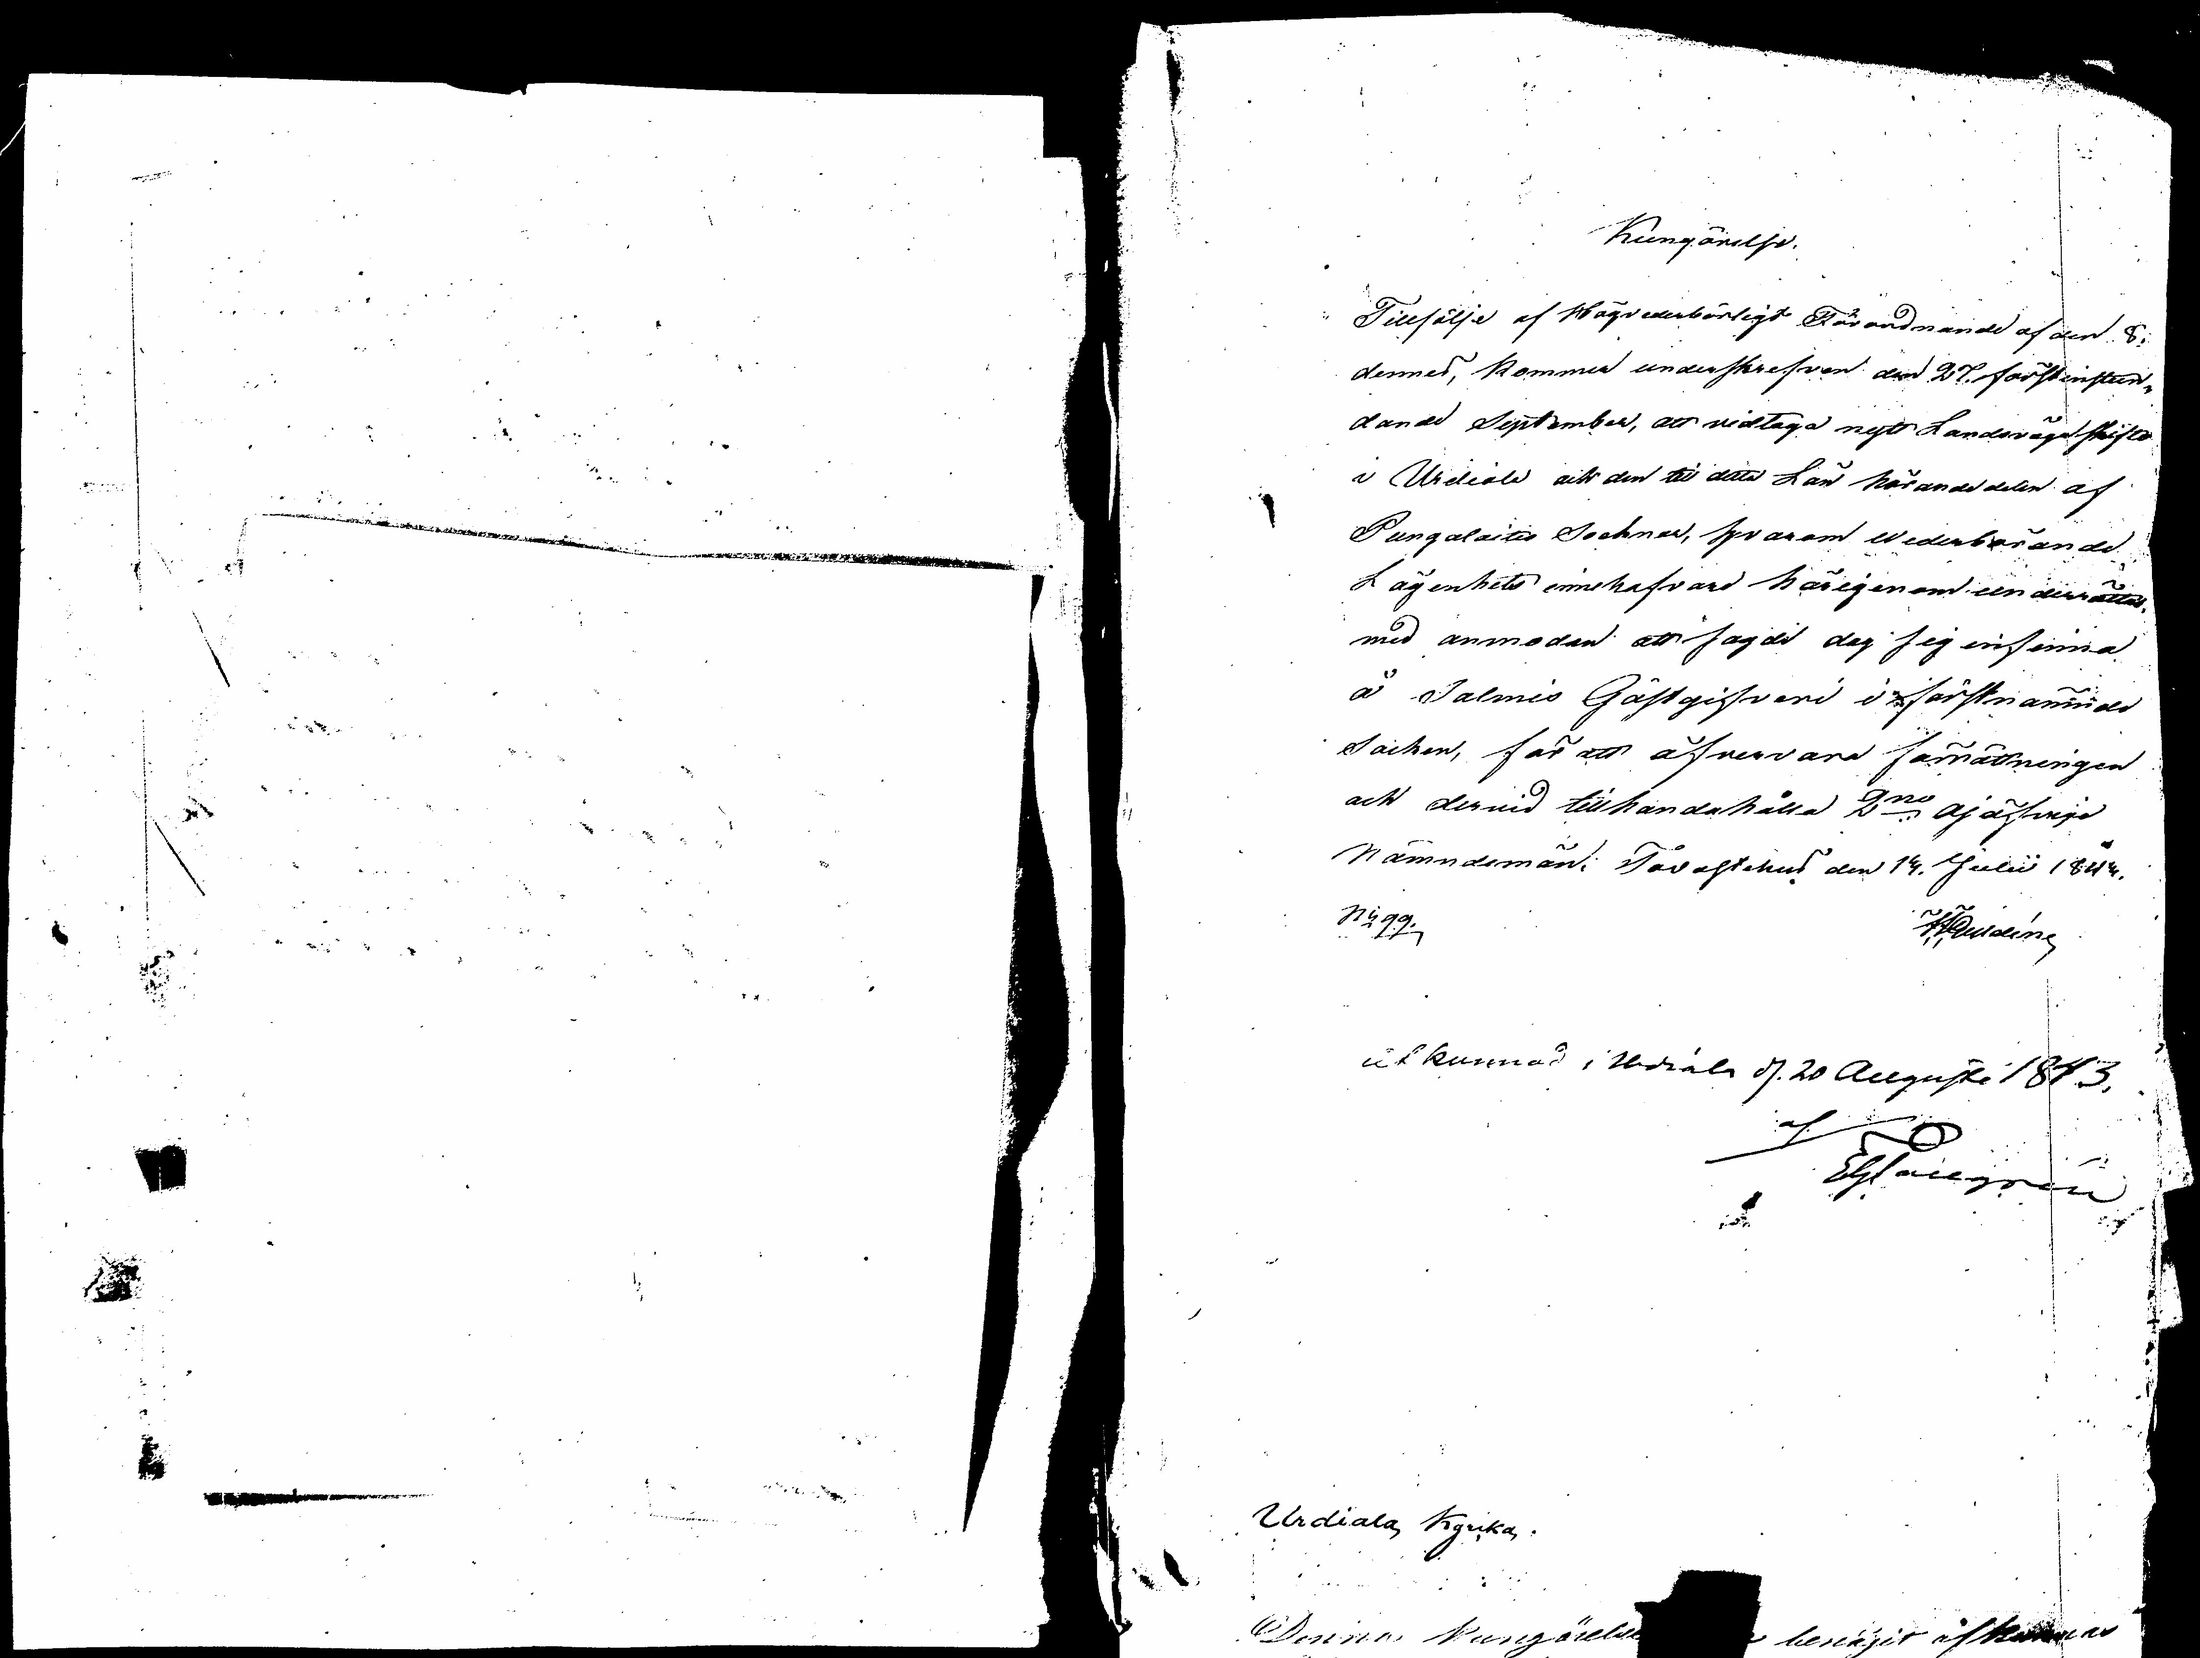 Kungörelse.
Tillfölje af Högvederbörligt Förordnande af den 8.
dennes, kommer underskrefven den 27. förstinstun-
dande September, att vidtaga nytt Landsvägsskifte
i Urdiala och den till detta Län hörande delen af
Pungalaitio Socknar, hvarom wederbörande
Lägenhets innehafvare härigenom underrättas,
med anmodan att sagde dag sig infinna
å Salmis Gästgifveri i förstnämnde
Socken, för att öfvervara förrättningen
och dervid tillhandahålla 2ne ojäfvige
Nämndemän. Tavastehus den 14. Julii 1843.
N: 99.
Utkunnad i Urdiala d. 20 Augusti 1843.
af
Urdiala Kyrka.
Denna Kungörelse benäget afkunnas